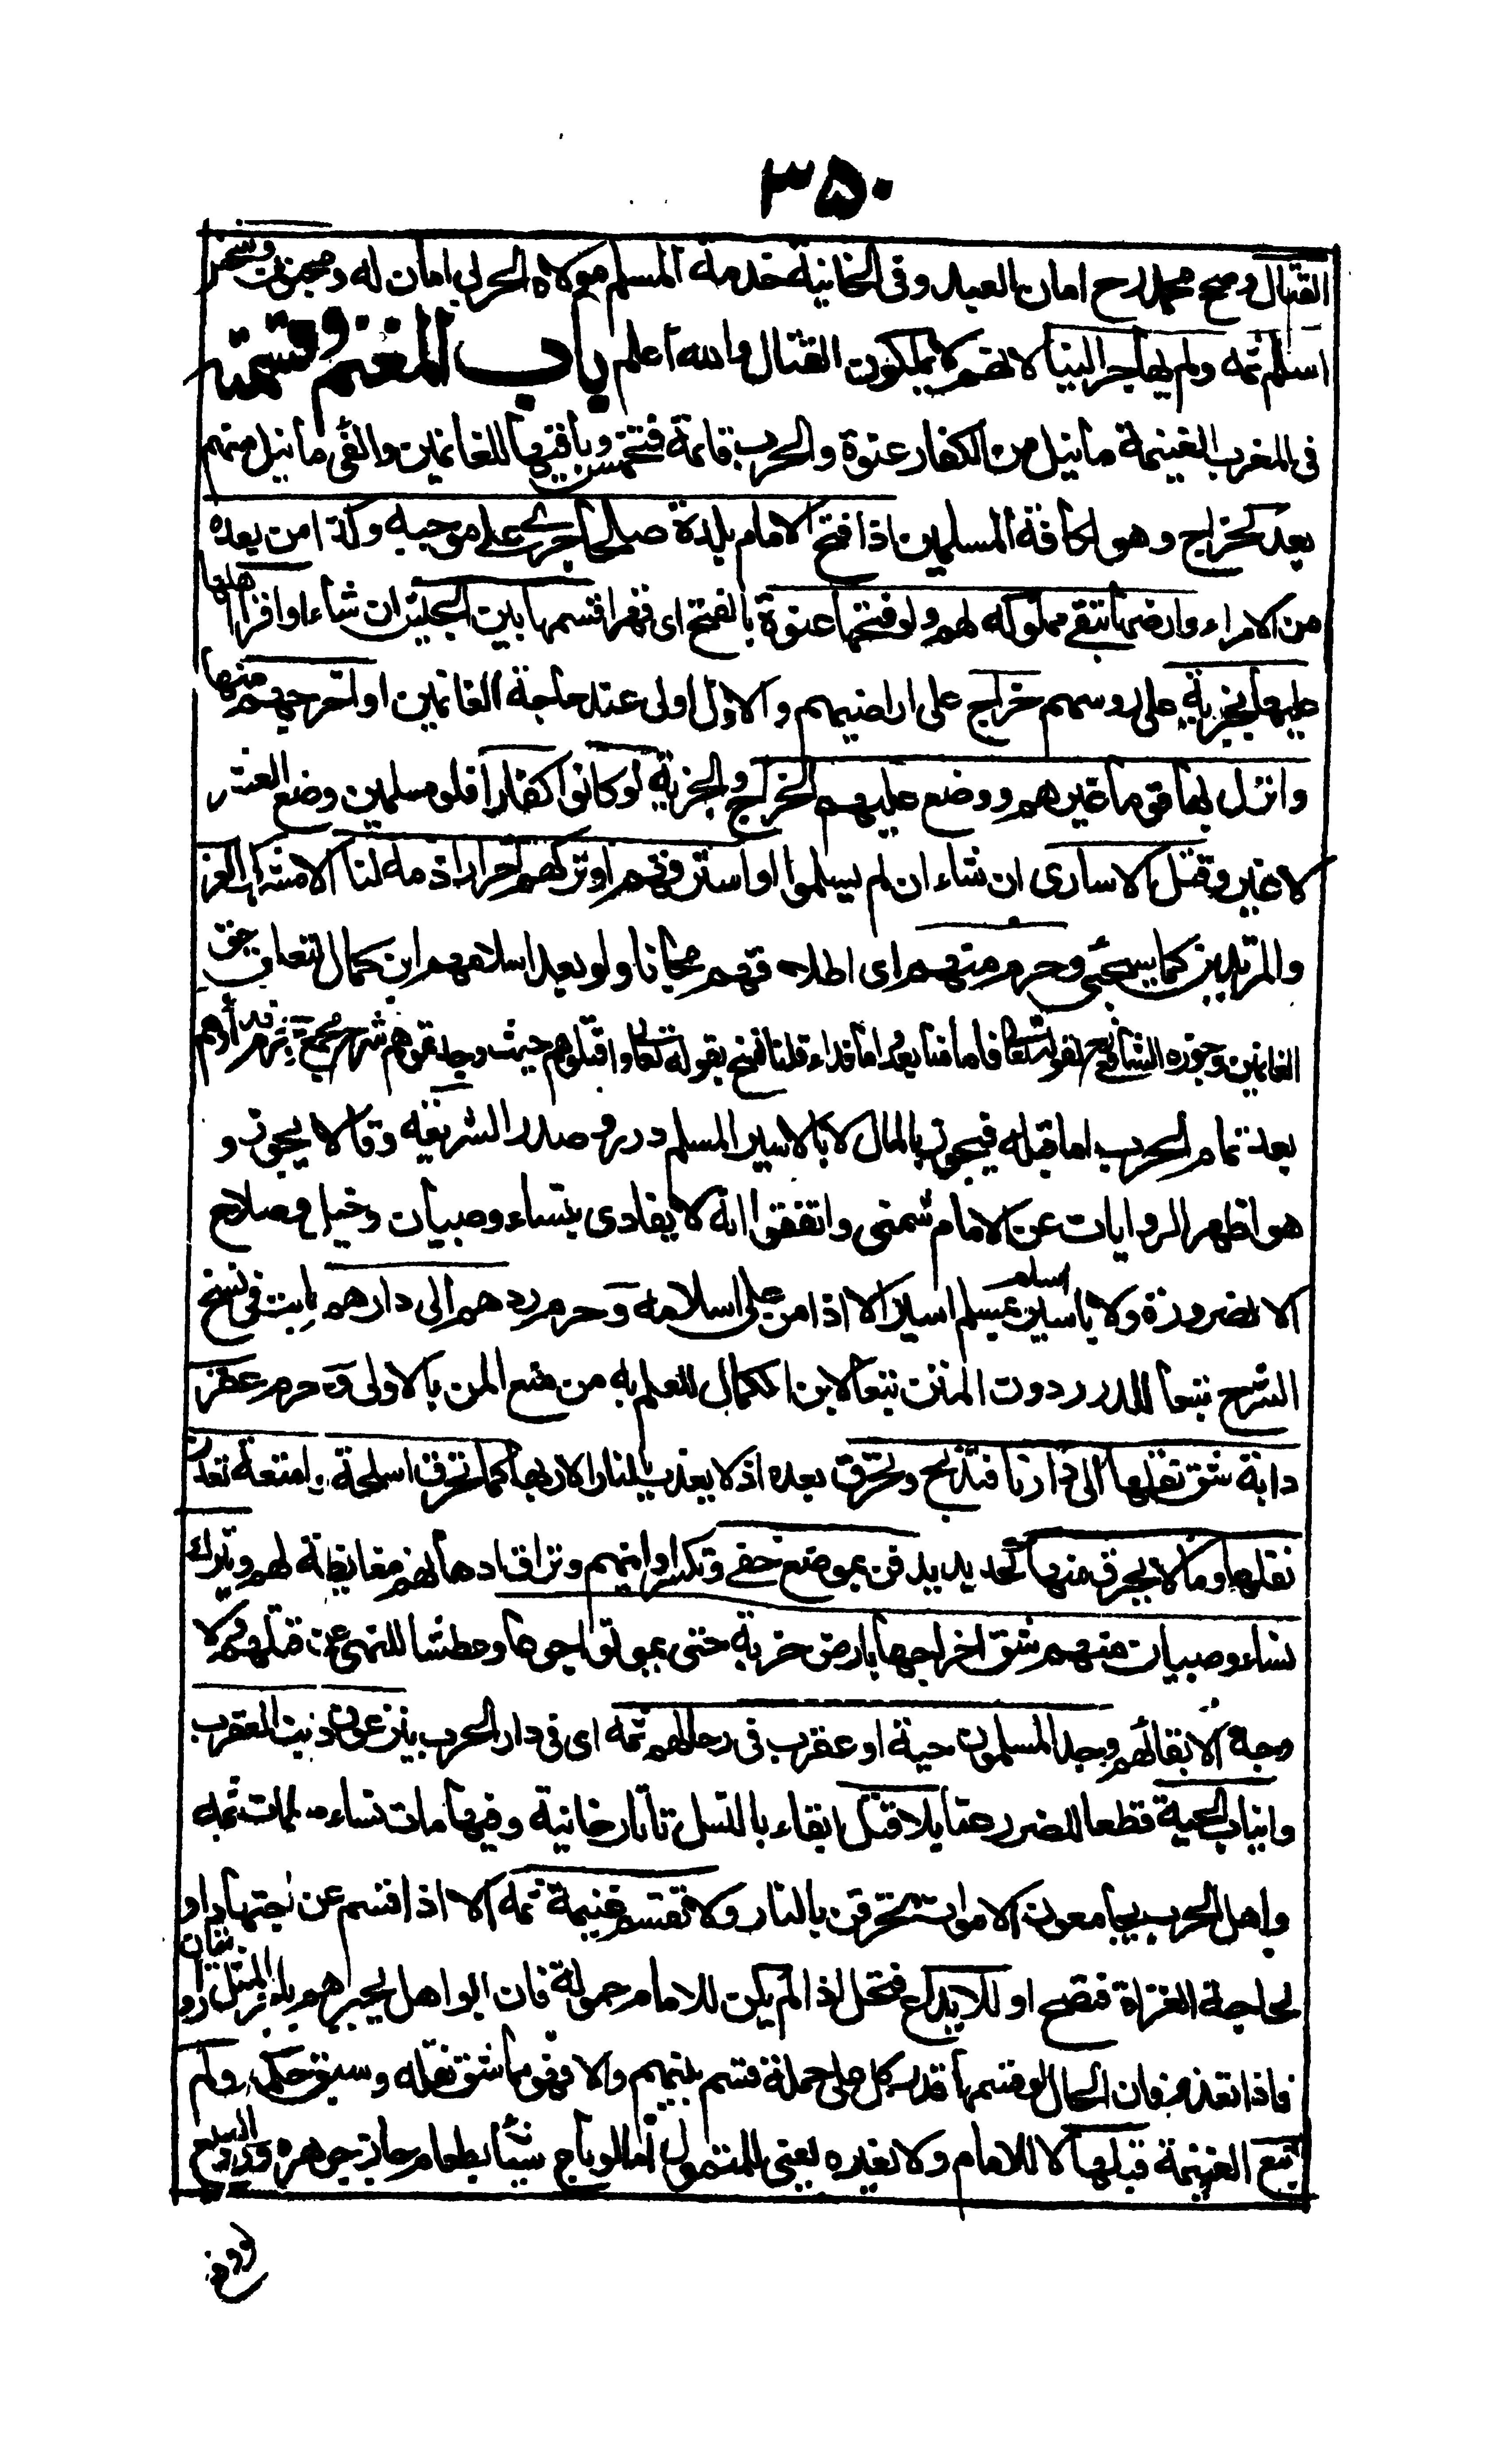 ۳۵۰
القتال وصح محمد رح امان العبد وفى الخانية خدمة المسلم مولاه الحربى امان له ومجنون وشخص
اسلم ثمه ولم يهاجر الينا لانهم لا يملكون القتال والله اعلم باب المغنم وقسمته
فى المغرب الغنيمة ما نيل من الكفار عنوة والحرب قائمة فتخمس وباقيها للغانمين والفى ما نيل منهم
بعد كخراج وهو لكافة المسلمين اذا فتح الامام بلدة صلحا جرى على موجبه وكذا من بعده
من الامراء وارضها تبقى مملوكه لهم ولو فتحها عنوة بالفتح اى قهرا قسمها بين الجيش ان شاء او اقر اهلها
عليها بجزية على روسهم خراج على اراضيهم والاول اولى عند حاجة الغانمين او اخرجهم منها
وانزل بها قوما غيرهم ووضع عليهم الخراج والجزية لو كانوا كفارا فلو مسلمين وضع العشر
لا غير وقتل الاسارى ان شاء ان لم يسلموا او استرقهم او تركهم احرارا ذمه لنا الا مشركى العرب
والمرتدين كما سيجئ وحرم منهم اى اطلاقهم مجانا ولو بعد اسلامهم ابن كمال لتعلق حق
الغانمين وجوزه الشافعى لقوله تعالى فاما منا بعد واما فداء قلنا نسخ بقوله تعالى واقتلوهم حيث وجدتموهم شرح مجمع وحرم فداؤهم
بعد تمام الحرب اما قبله فيجوز بالمال لا بالاسير المسلم درر وصدر الشريعه وقالا يجوز و
هو اظهر الروايات عن الامام شمنى واتفقوا انه لا يفادى بنساء وصبيان وخيل وسلاح
الا لضرورة ولا باسير اسلم بمسلم اسير الا اذا امن على اسلامه وحرم ردهم الى دارهم ثابت فى نسخ
الشرح تبعا للدرر دون المتن تبعا لابن الكمال للعلم به من منع المن بالاولى وحرم عقر
دابة شق نقلها الى دارنا فتذبح وتحرق بعده اذ لا يعذب بالنار الا ربها كما تحرق اسلحة وامتعة تعذر
نقلها وما لا يحرق منها كحديد يدفن بموضع خفى وتكسر اوانيهم وتراق ادهانهم مغايظة لهم ويترك
نساء وصبيان منهم شق اخراجها بارض خربة حتى يموتوا جوعا وعطشا للنهى عن قتلهم ولا
وجه الى ابقائهم وجد المسلمون حية او عقرب فى رحالهم ثمه اى فى دار الحرب ينزعون ذنب العقرب
وانياب الحية قطعا للضرر عنا بلا قتل ابقاء بالنسل تاتارخانية وفيها مات نساء مسلمات ثمه
واهل الحرب يجامعون الاموات تحرقن بالنار ولا تقسم غنيمة ثمه الا اذا قسم عن اجتهاد او
لحاجة الغزاة فتصح او للايداع فتحل اذا لم يكن للامام حمولة فان ابوا هل يجبرهم باجر المثل روايتان
فاذا تعذر فان بحال لو قسمها قدر كل على حمله قسم بينهم والا فهو مما شق نقله وسبق حكمه ولم
تبع الغنيمة قبلها لا للامام ولا لغيره يعنى للتمول اما لو باع شيئا بطعام جاز جوهره ورد البيع